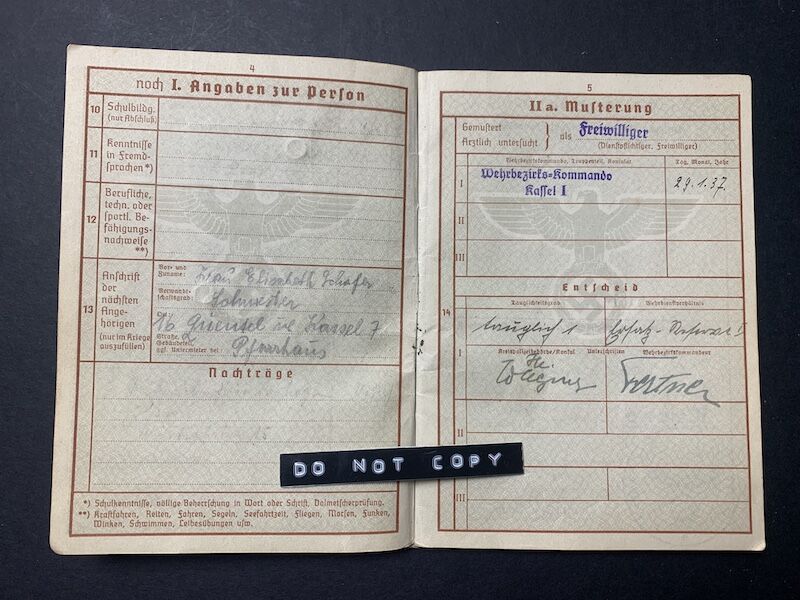 4
noch I. Angaben zur Person
10 Schulbildg.
(nur Abschluß)
11 Kenntnisse
in Fremd-
sprachen *)
12 Berufliche,
techn. oder
sportl. Be-
fähigungs-
nachweise
**)
13 Anschrift
der
nächsten
Ange-
hörigen
(nur im Kriege
auszufüllen)
Vor- und
Zuname:
Frau Elisabeth Schäfer
Verwandt-
schaftsgrad:
Schwester
16 Kassel 7
Straße,
Gebäudeteil,
ggf. Untermieter bei:
Pfarrhaus
Nachträge
*) Schulkenntnisse, völlige Beherrschung in Wort oder Schrift, Dolmetscherprüfung.
**) Kraftfahren, Reiten, Fahren, Segeln, Seefahrtzeit, Fliegen, Morsen, Funken,
Winken, Schwimmen, Leibesübungen usw.
5
II a. Musterung
Gemustert
Ärztlich untersucht } als Freiwilliger
(Dienstpflichtiger, Freiwilliger)
Wehrbezirkskommando, Truppenteil, Konsulat
Tag, Monat, Jahr
I Wehrbezirks-Kommando
Kassel I
29.1.37.
II
III
Entscheid
14
Tauglichkeitsgrad
Wehrdienstverhältnis
I
tauglich 1
Ersatz-Reserve I
Kreispolizeibehörde/Konsul
Unterschriften
Wehrbezirkskommandeur
II
III
DO NOT COPY